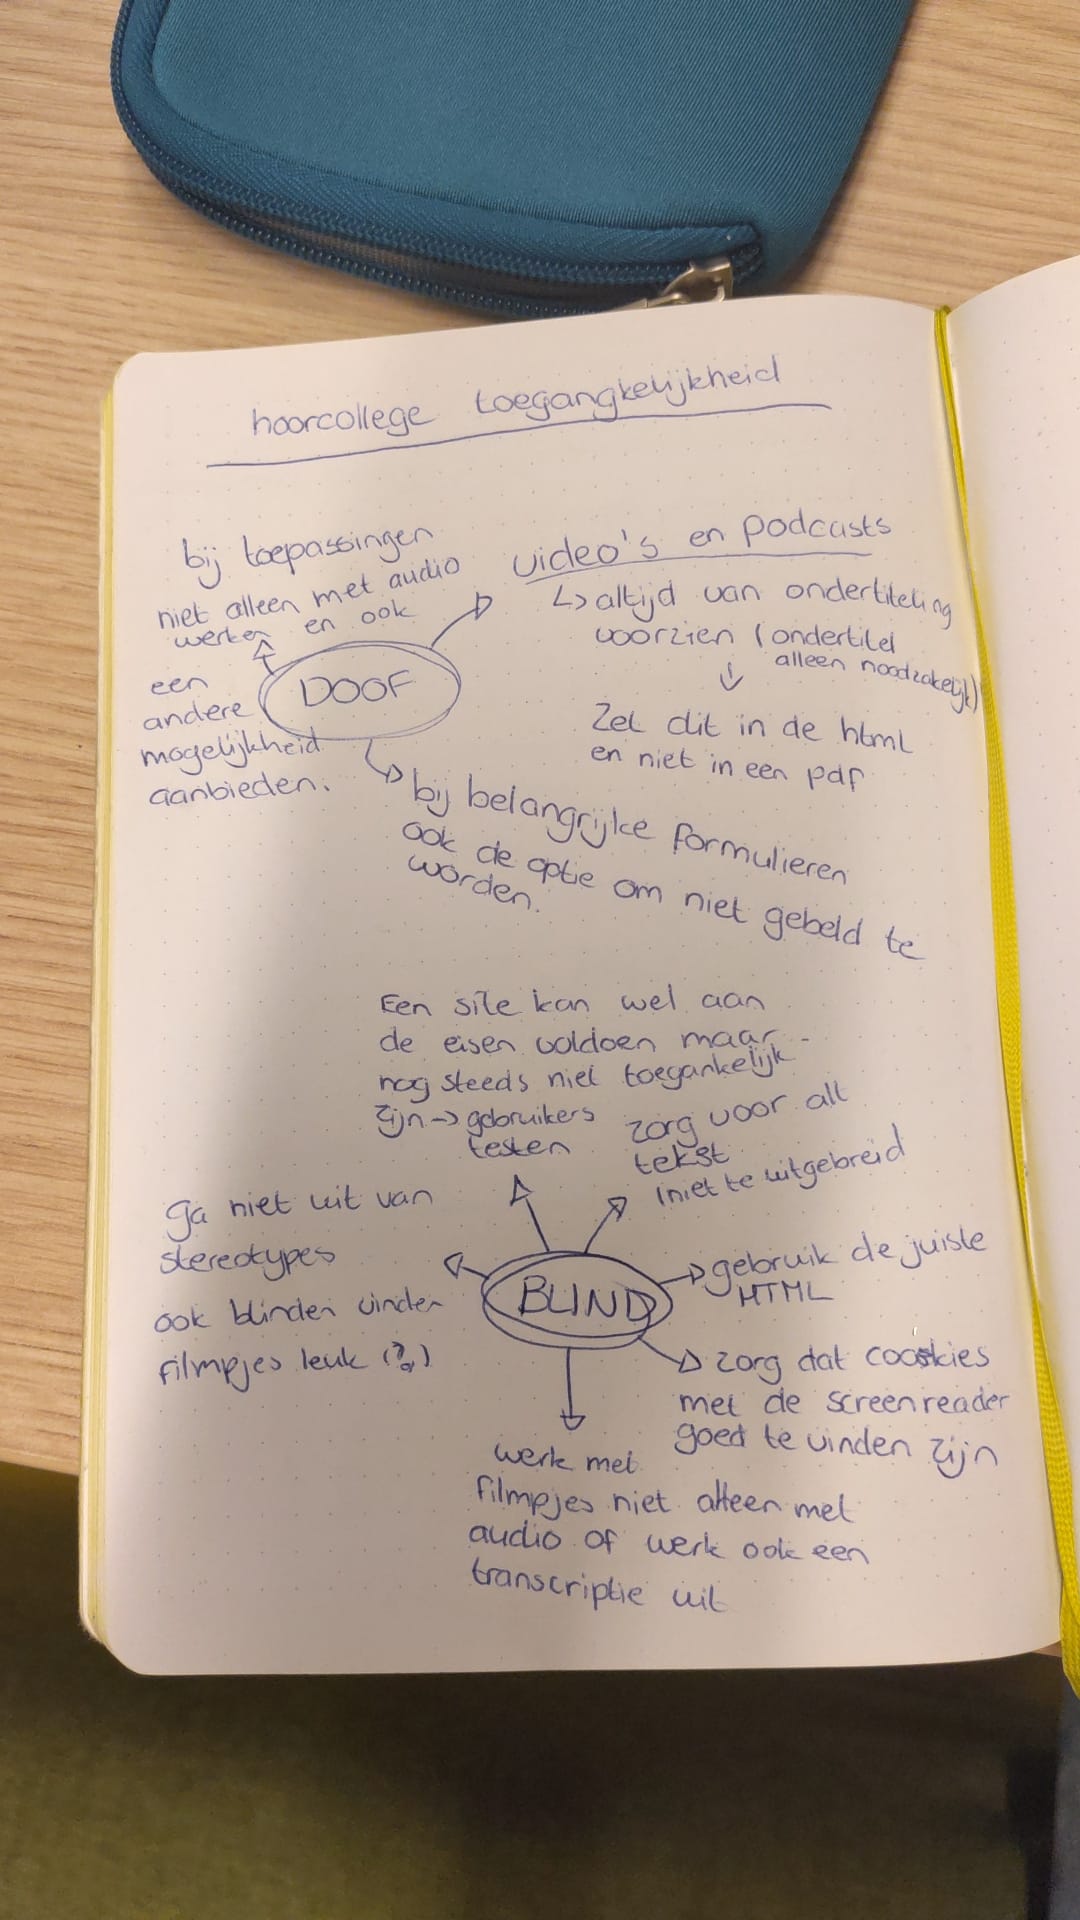 hoorcollege toegangkelijkheid
bij toepassingen
niet alleen met audio
werken en ook
een
andere
mogelijkheid
aanbieden.
DOOF
video's en podcasts
↳ altijd van ondertiteling
voorzien (ondertitel
alleen noodzakelijk)
↓
Zet dit in de html
en niet in een pdf
bij belangrijke formulieren
ook de optie om niet gebeld te
worden.
Een site kan wel aan
de eisen voldoen maar
nog steeds niet toegankelijk
zijn → gebruikers
testen
zorg voor alt
tekst
(niet te uitgebreid
Ga niet uit van
stereotypes
ook blinden vinden
filmpjes leuk (?)
BLIND
gebruik de juiste
HTML
zorg dat cookies
met de screenreader
goed te vinden zijn
werk met
filmpjes niet alleen met
audio of werk ook een
transcriptie uit